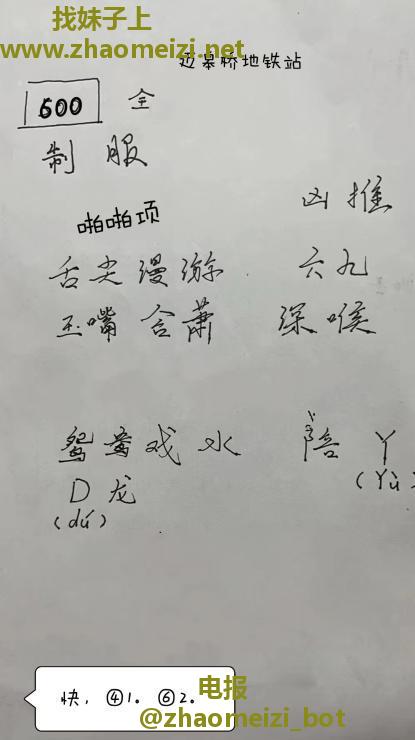 找妹子上
www.zhaomeizi.net
迈皋桥地铁站
600 全
制服
凶推
啪啪项
舌尖漫游 六九
玉嘴含萧 深喉
鸳鸯戏水 陪 丫
(Yù)
D龙
(dú)
快，④1。⑥2。
电报
@zhaomeizi_bot